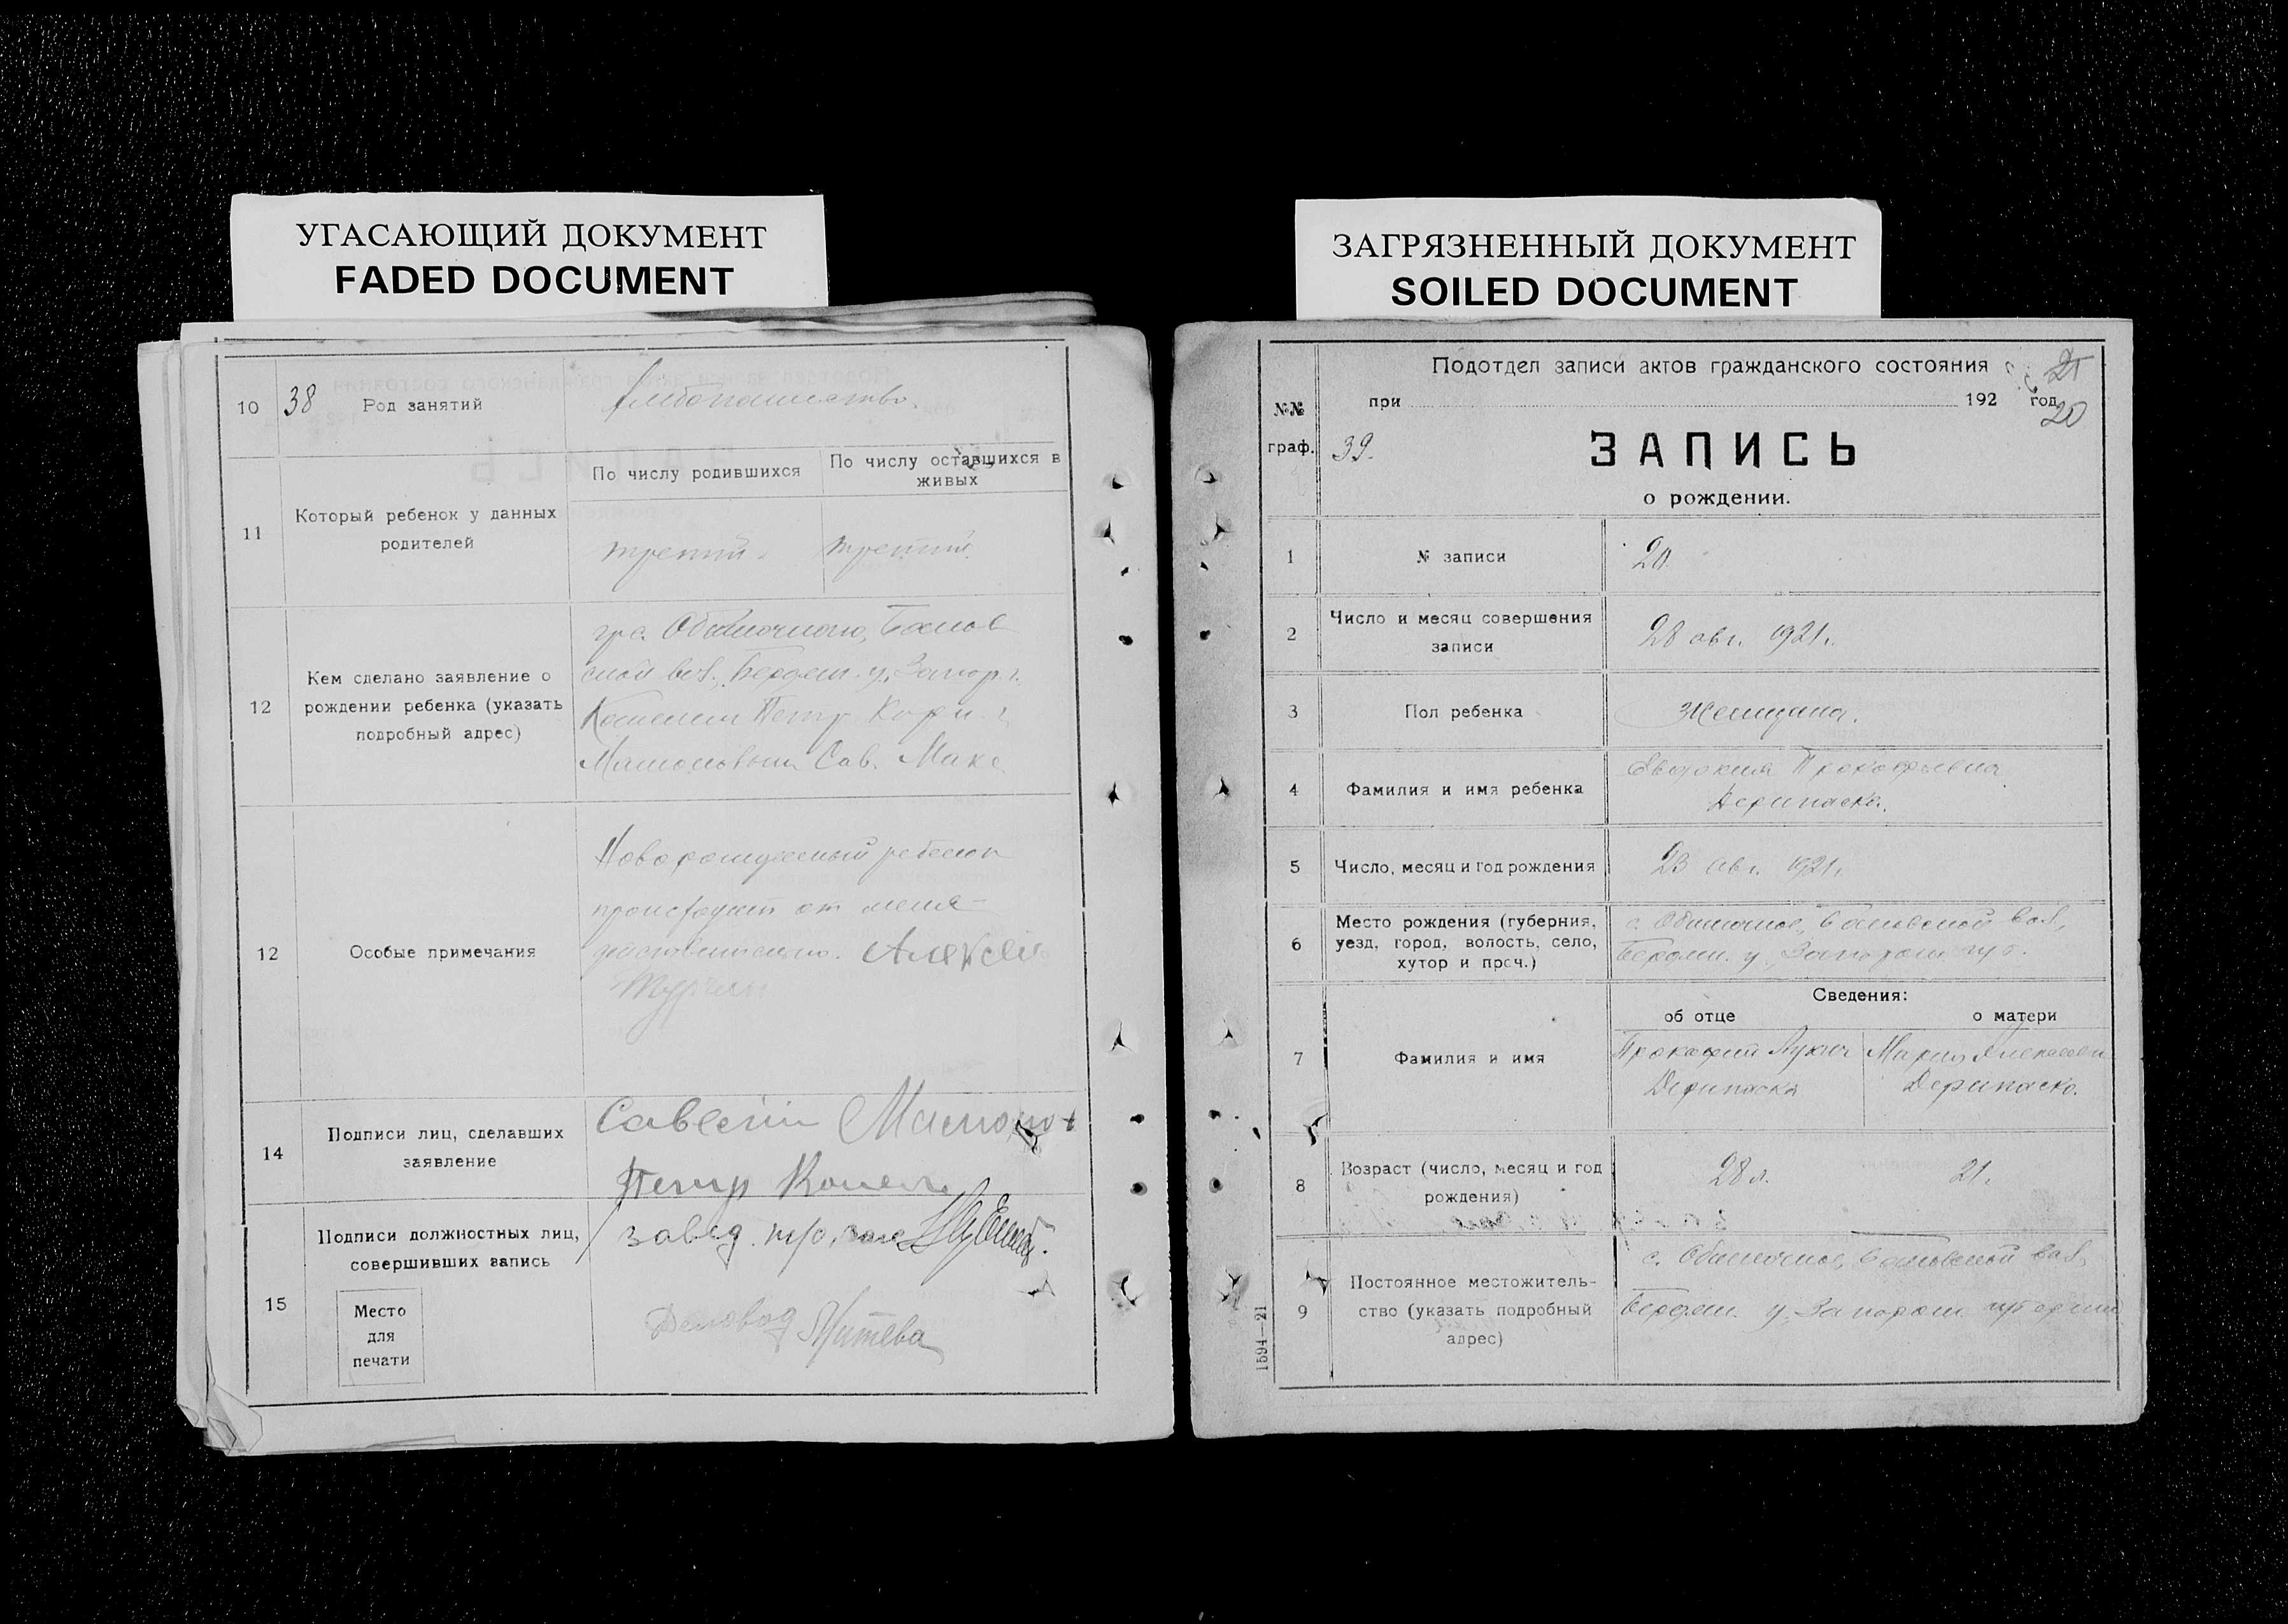 УГАСАЮЩИЙ ДОКУМЕНТ
FADED DOCUMENT
10
38
Род занятий
Хлебопашество.
11
Который ребенок у данных
родителей
По числу родившихся
По числу оставшихся в
живых
третий.
третий.
12
Кем сделано заявление о
рождении ребенка (указать
подробный адрес)
гр. с. Обиточного, Банов
ской вол., Бердян. у. Запор. г.
Петр
Сав. Макс
12
Особые примечания
Новорожденный ребенок
происходит от меня
действительно. Алексей
14
Подписи лиц, сделавших
заявление
Савелий
Петр
15
Подписи должностных лиц,
совершивших запись
Место
для
печати
завед. п/о, зап.
Деловод
ЗАГРЯЗНЕННЫЙ ДОКУМЕНТ
SOILED DOCUMENT
№№
граф.
Подотдел записи актов гражданского состояния
21
при 192 год
20
39.
ЗАПИСЬ
о рождении.
1
№ записи
20.
2
Число и месяц совершения
записи
28 авг. 1921 г.
3
Пол ребенка
Женщина.
4
Фамилия и имя ребенка
Евдокия Прокофьевна
Дерипаска.
5
Число, месяц и год рождения
23 авг. 1921 г.
6
Место рождения (губерния,
уезд, город, волость, село,
хутор и проч.)
с. Обиточное, Бановской вол.,
Бердян. у. Запорож. губ.
Сведения:
об отце
о матери
7
Фамилия и имя
Прокофий Лукич
Дерипаска
Мария
Дерипаска.
8
Возраст (число, месяц и год
рождения)
28 л.
21.
9
Постоянное местожитель-
ство (указать подробный
адрес)
с. Обиточное, Бановской вол.,
Бердян. у. Запорож. губернии
1594—21